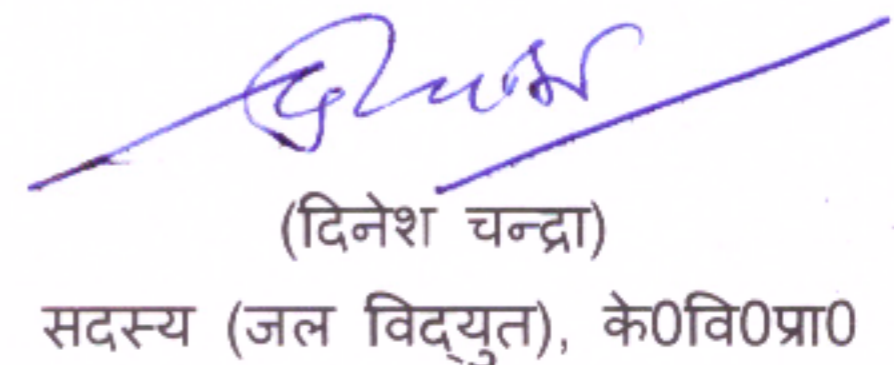 (दिनेश चन्द्रा)
सदस्य (जल विद्‌युत), के0वि0प्रा0